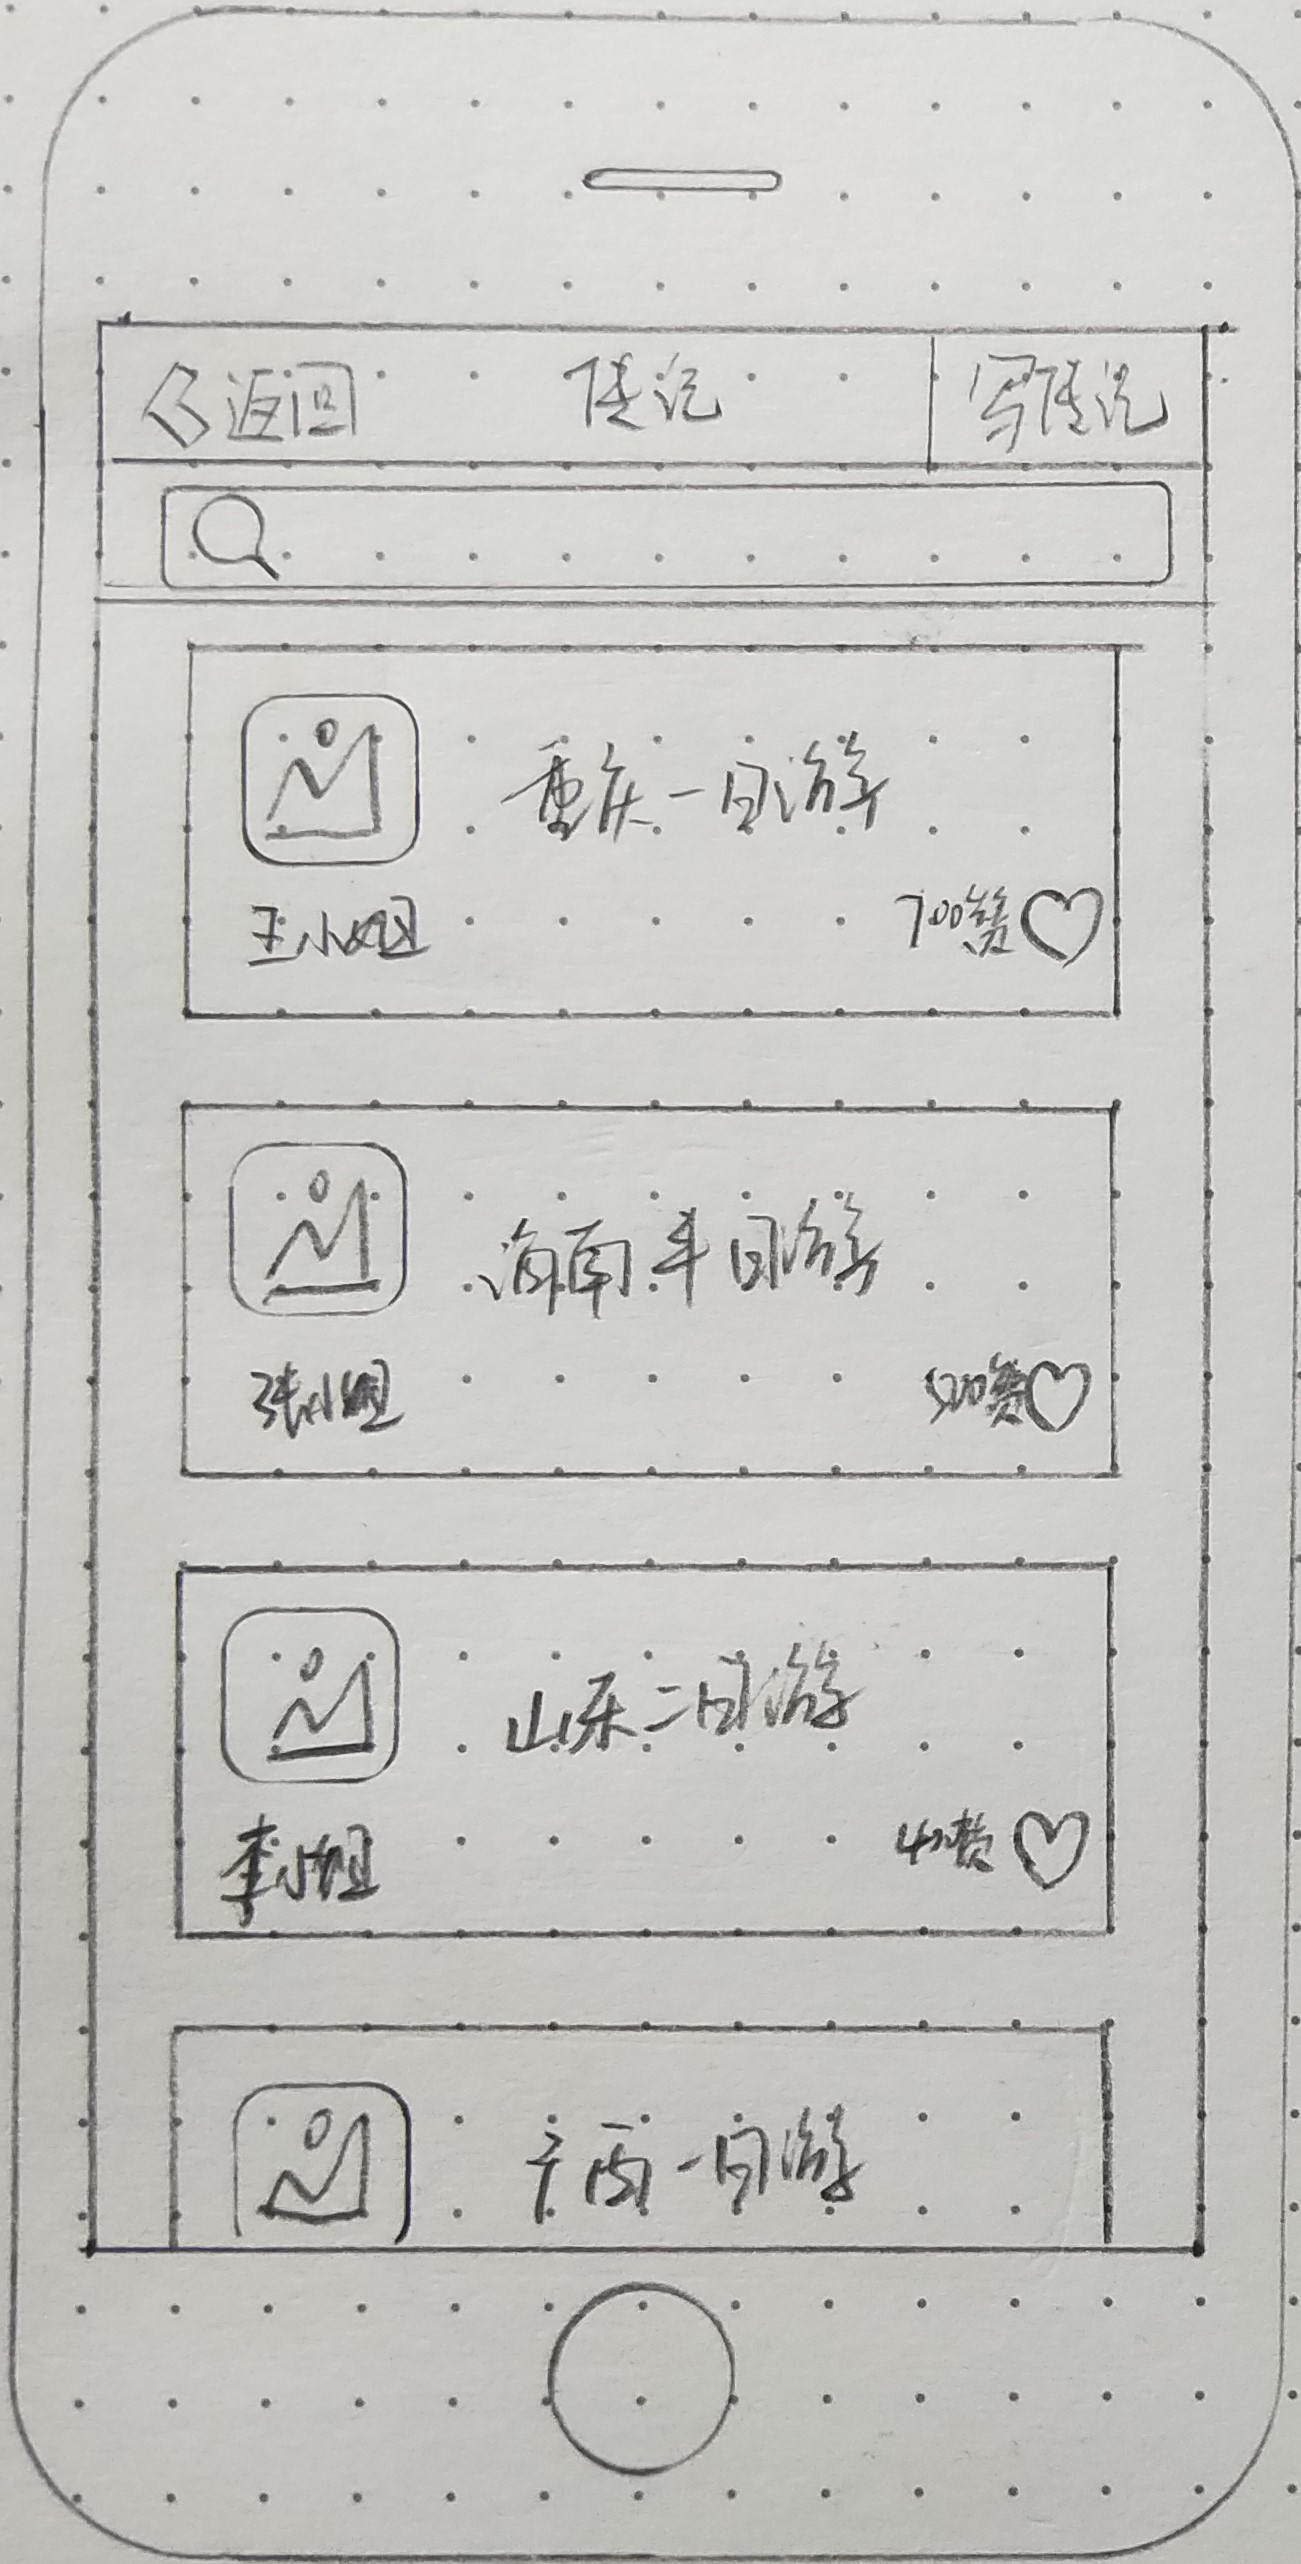 返回 传记 写传记
重庆一日游
王小姐 700赞
海南半日游
张小姐 500赞
山东二日游
李小姐 400赞
广西一日游